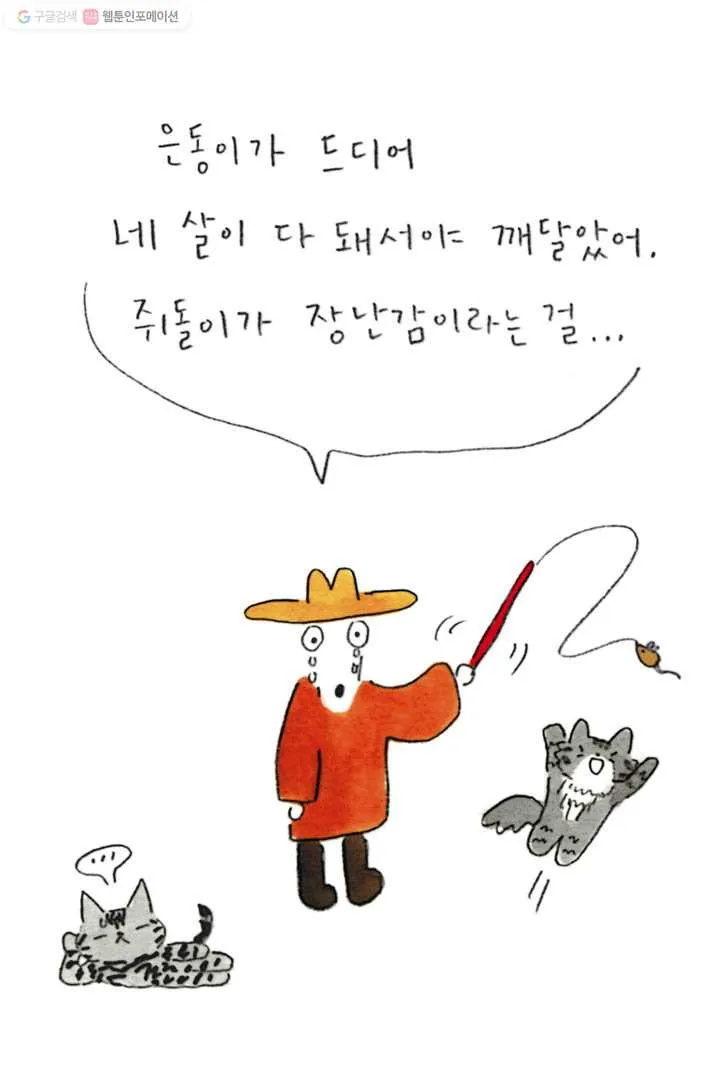 구글검색 웹툰인포메이션
은동이가 드디어
네 살이 다 돼서야 깨달았어.
쥐돌이가 장난감이라는 걸...
...